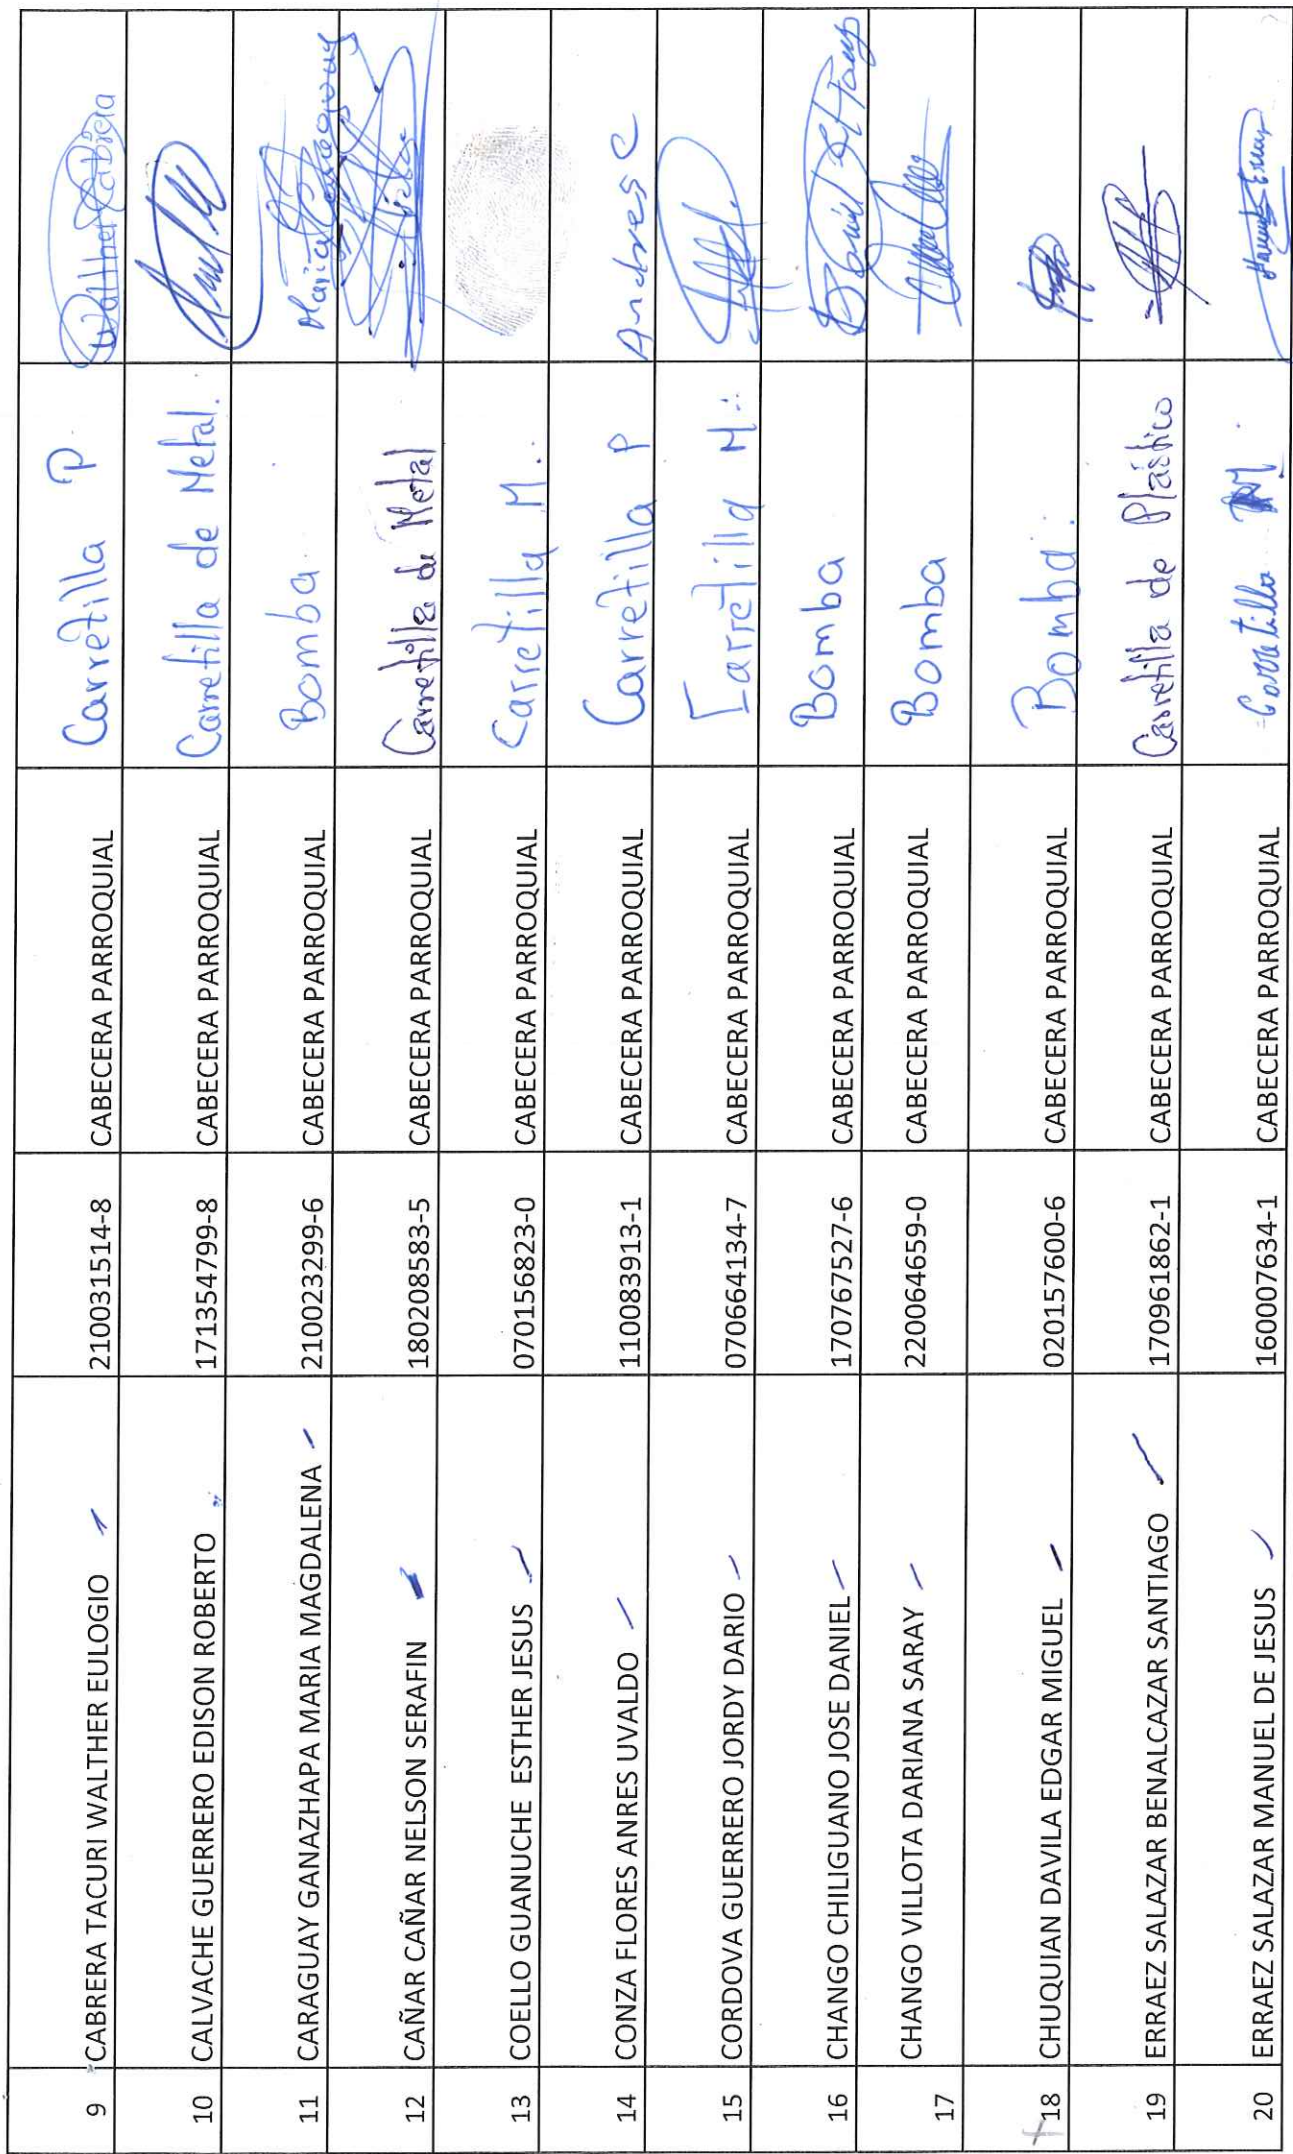 9 CABRERA TACURI WALTHER EULOGIO 210031514-8 CABECERA PARROQUIAL Carretilla P. Walther Cabrera
10 CALVACHE GUERRERO EDISON ROBERTO 171354799-8 CABECERA PARROQUIAL Carretilla de Metal.
11 CARAGUAY GANAZHAPA MARIA MAGDALENA 210023299-6 CABECERA PARROQUIAL Bomba Maria Caraguay
12 CAÑAR CAÑAR NELSON SERAFIN 180208583-5 CABECERA PARROQUIAL Carretilla de Metal
13 COELLO GUANUCHE ESTHER JESUS 070156823-0 CABECERA PARROQUIAL Carretilla M.
14 CONZA FLORES ANRES UVALDO 110083913-1 CABECERA PARROQUIAL Carretilla P Andres C
15 CORDOVA GUERRERO JORDY DARIO 070664134-7 CABECERA PARROQUIAL Carretilla M.
16 CHANGO CHILIGUANO JOSE DANIEL 170767527-6 CABECERA PARROQUIAL Bomba
17 CHANGO VILLOTA DARIANA SARAY 220064659-0 CABECERA PARROQUIAL Bomba
18 CHUQUIAN DAVILA EDGAR MIGUEL 020157600-6 CABECERA PARROQUIAL Bomba.
19 ERRAEZ SALAZAR BENALCAZAR SANTIAGO 170961862-1 CABECERA PARROQUIAL Carretilla de Plastico
20 ERRAEZ SALAZAR MANUEL DE JESUS 160007634-1 CABECERA PARROQUIAL Carretilla